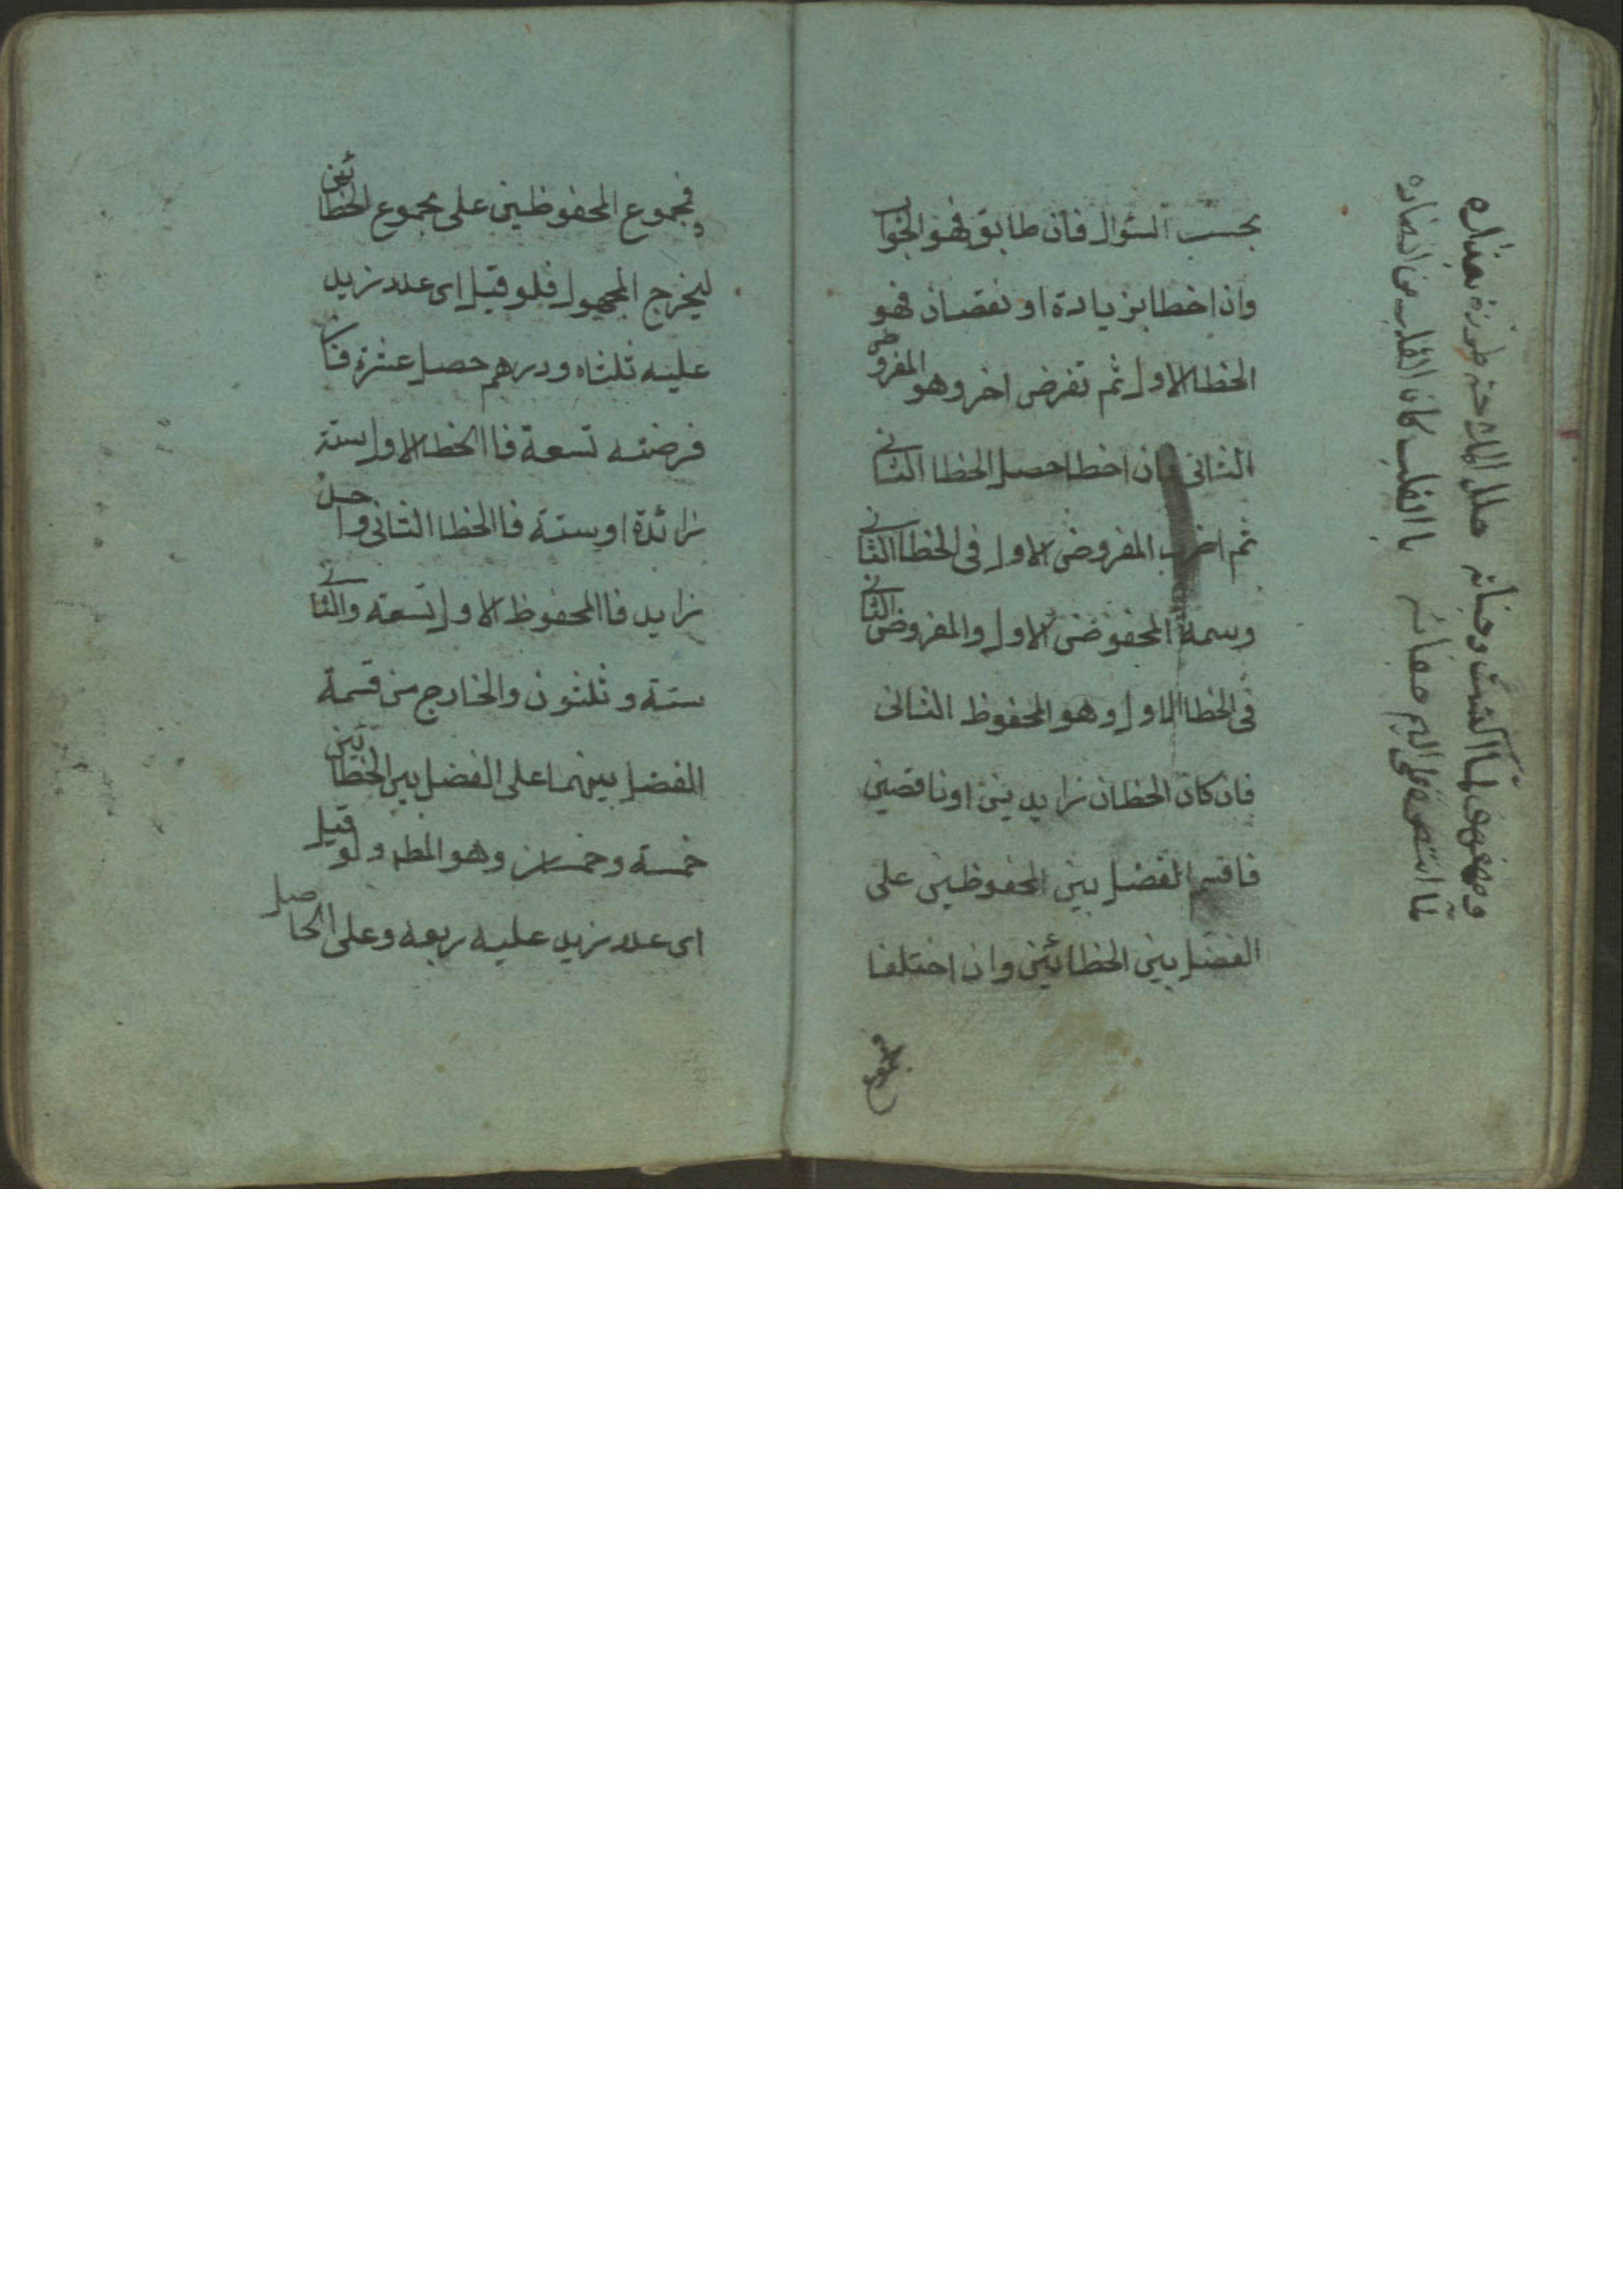 بحسب السؤال فان طابق فهو الجواب
وان اخطا بزيادة او نقصان فهو
الخطا الاول ثم تفرض اخر وهو المفروض
الثانى فان اخطا حصل الخطا الثانى
ثم اضرب المفروض الاول فى الخطا الثانى
وسمه المحفوض الاول والمفروض الثانى
فى الخطا الاول وهو المحفوظ الثانى
فان كان الخطان زايدين او ناقصين
فاقسم الفضل بين المحفوظين على
الفضل بين الخطائين وان اختلفا
فمجموع
فمجموع المحفوظين على مجموع الخطائين
ليخرج المجهول فلو قيل اى عدد زيد
عليه ثلثاه ودرهم حصل عشرة فان
فرضته تسعة فاالخطا الاول ستة
زائدة او ستة فاالخطا الثانى واحد
زايد فاالمحفوظ الاول تسعة والثانى
ستة وثلثون والخارج من قسمة
الفضل بينهما على الفضل بين الخطائين
خمسة وخمسان وهو المطه ولو قيل
اى عدد زيد عليه ربعه وعلى الحاصل